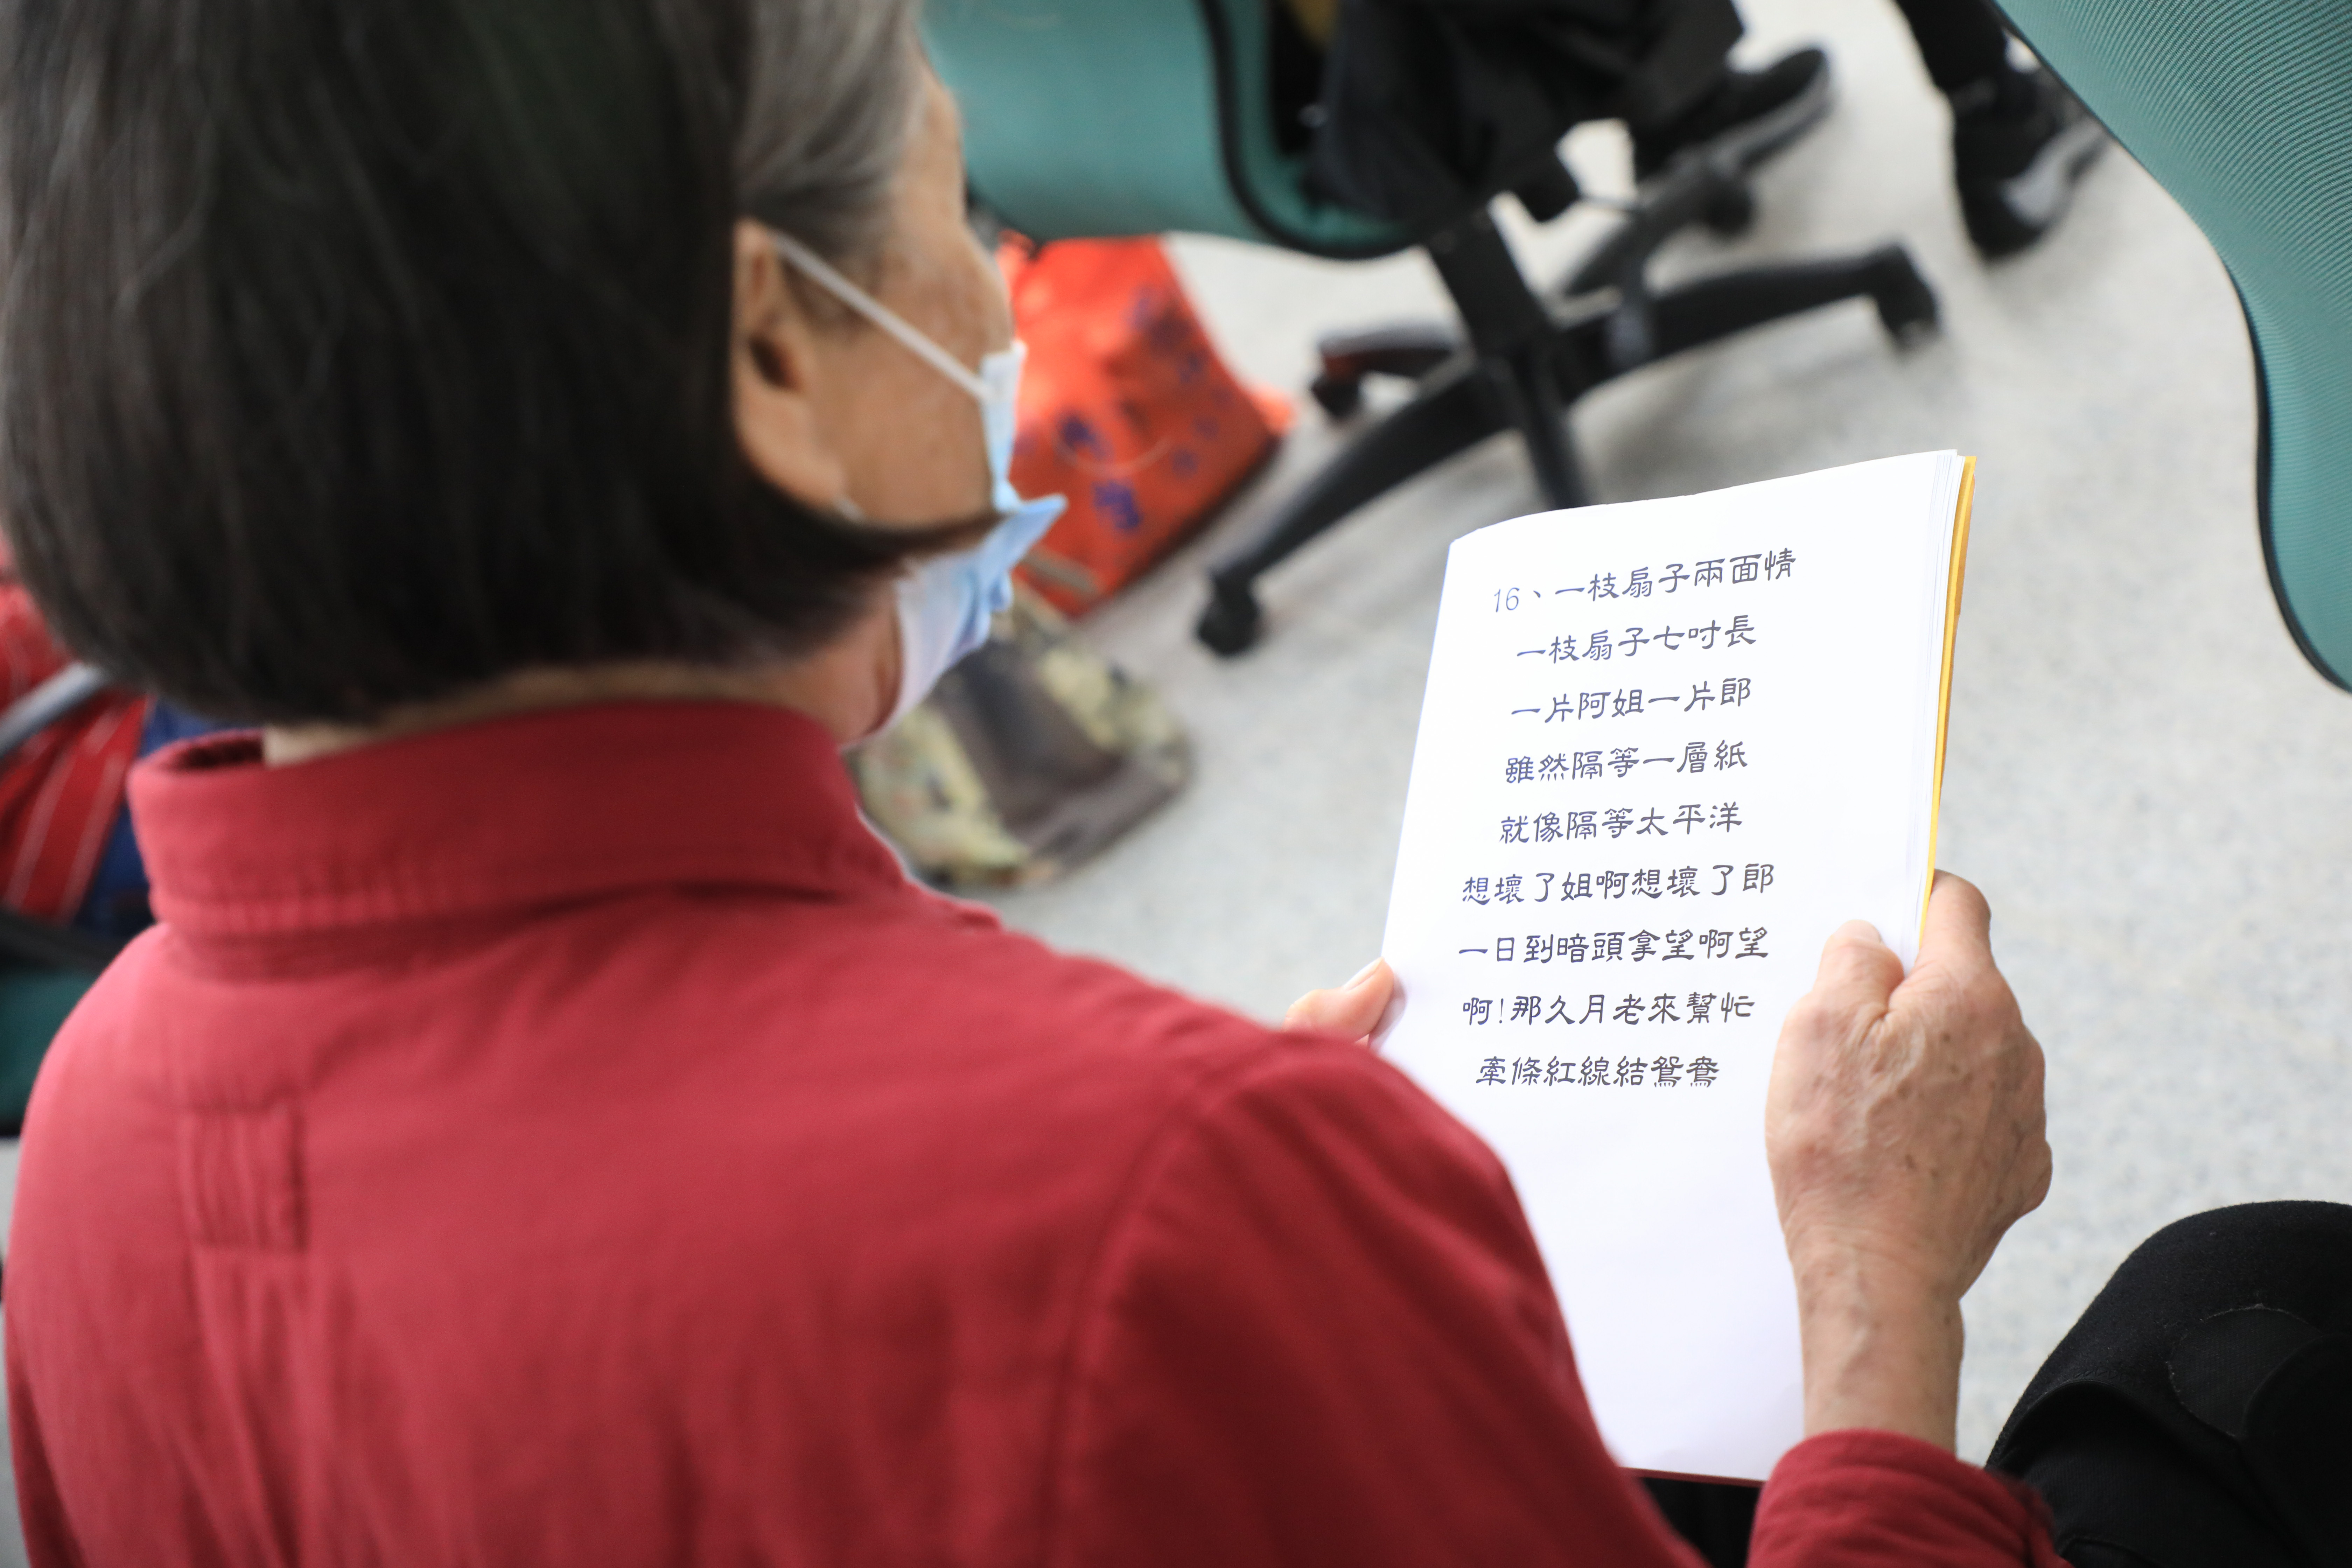 16、一枝扇子兩面情
一枝扇子七吋長
一片阿姐一片郎
雖然隔等一層紙
就像隔等太平洋
想壞了姐啊想壞了郎
一日到暗頭拿望啊望
啊!那久月老來幫忙
牽條紅線結鴛鴦